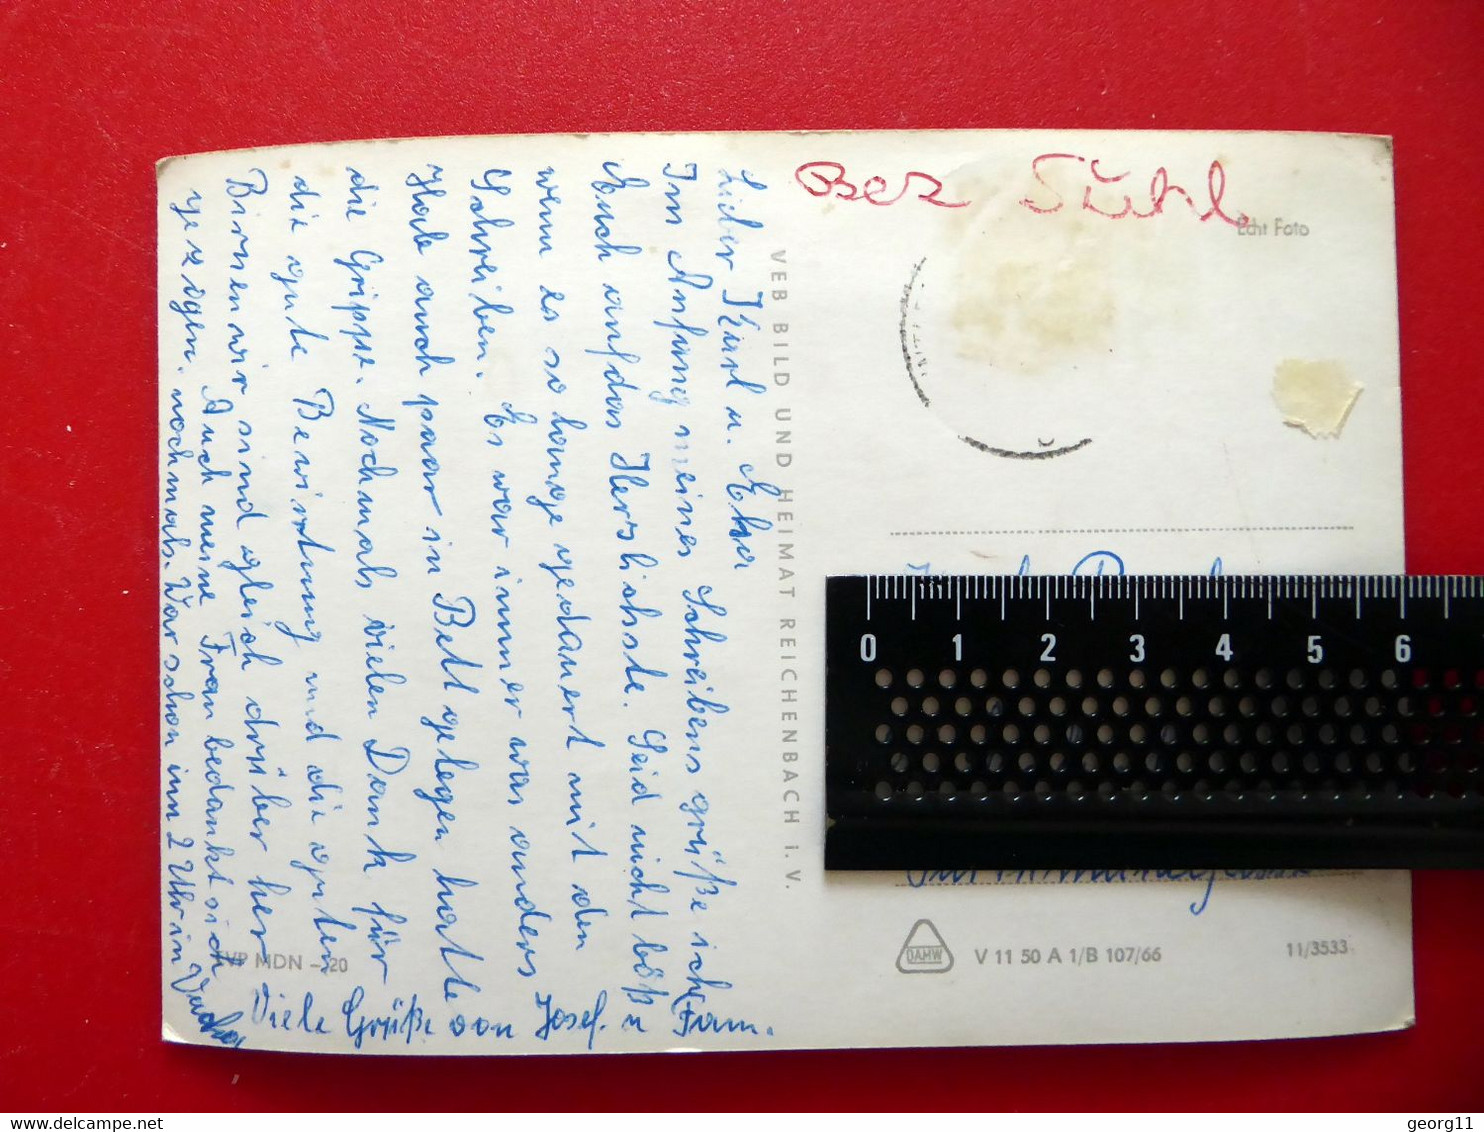 Bez Suhl
Echt Foto
Lieber Karl u. Elsa
Im Anfang meines Schreibens grüße ich
Euch aufdas Herslichste. Seid nicht böß
wenn es so lange gedauert mit den
Schreiben. Es war immer was anders
Habe auch paar in Bett gelegen hatte
die Grippe. Nochmals vielen Dank für
die gute Bewirtung und die guten
Birnen wir sind gleich drüber her
gezogen. Auch meine Frau bedankt sich
nochmals. War schon um 2 Uhr in Vacha
Viele Grüße von Josef. u Fam.
VEB BILD UND HEIMAT REICHENBACH i. V.
EVP MDN -,20
0 1 2 3 4 5 6
DAMW
V 11 50 A 1/B 107/66
11/3533
georg11